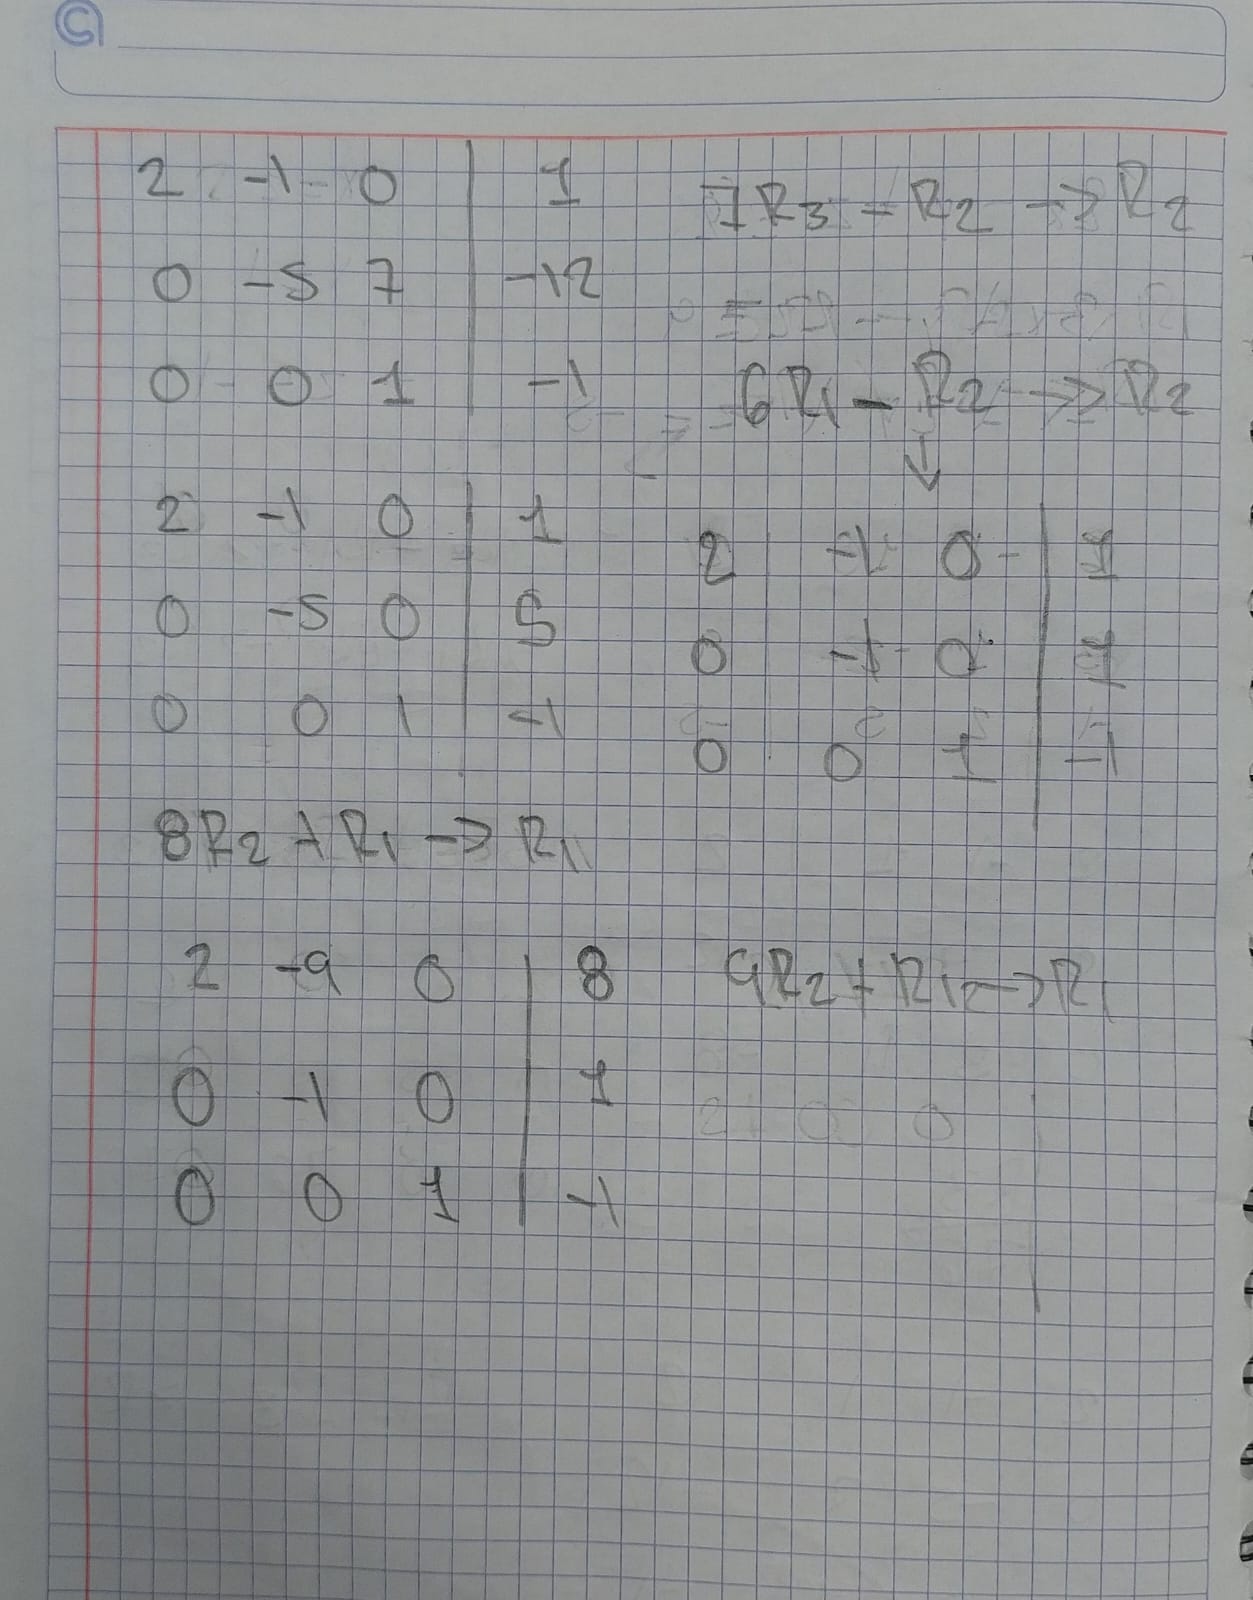 2 -1 0 | 1
7R3 - R2 → R2
0 -5 7 | -12
0 0 1 | -1
6R1 - R2 → R2
↓
2 -1 0 | 1
0 -5 0 | 5
0 0 1 | -1
2 -1 0 | 1
0 -1 0 | 1
0 0 1 | -1
8R2 + R1 → R1
2 -9 0 | 8
0 -1 0 | 1
0 0 1 | -1
9R2 + R1 → R1